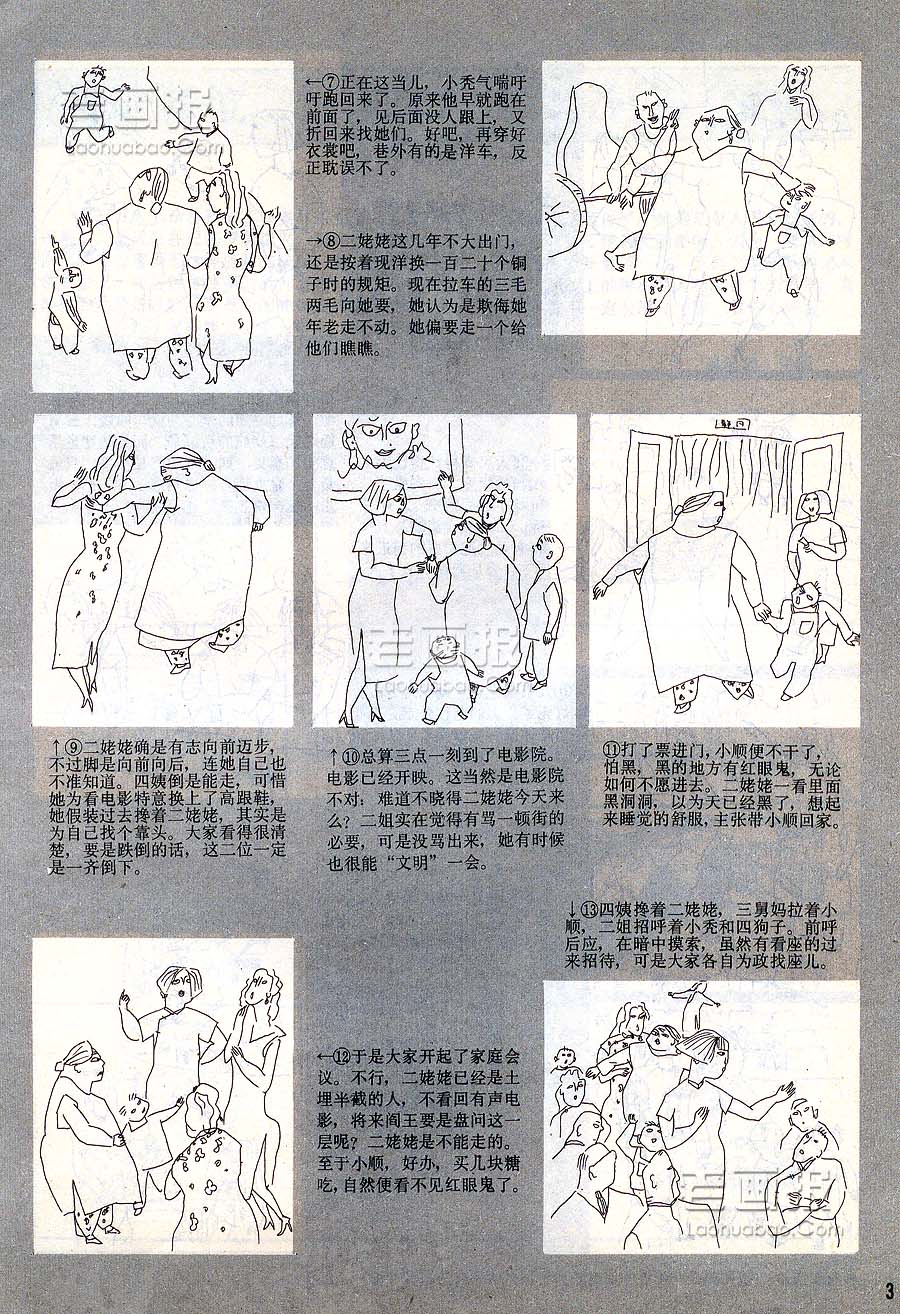 ←⑦正在这当儿，小秃气喘吁
吁跑回来了。原来他早就跑在
前面了，见后面没人跟上，又
折回来找她们。好吧，再穿好
衣裳吧，巷外有的是洋车，反
正耽误不了。
→⑧二姥姥这几年不大出门，
还是按着现洋换一百二十个铜
子时的规矩。现在拉车的三毛
两毛向她要，她认为是欺侮她
年老走不动。她偏要走一个给
他们瞧瞧。
↑⑨二姥姥确是有志向前迈步，
不过脚是向前向后，连她自己也
不准知道。四姨倒是能走，可惜
她为看电影特意换上了高跟鞋，
她假装过去搀着二姥姥，其实是
为自己找个靠头。大家看得很清
楚，要是跌倒的话，这二位一定
是一齐倒下。
↑⑩总算三点一刻到了电影院。
电影已经开映。这当然是电影院
不对：难道不晓得二姥姥今天来
么？二姐实在觉得有骂一顿街的
必要，可是没骂出来，她有时候
也很能“文明”一会。
⑪打了票进门，小顺便不干了，
怕黑，黑的地方有红眼鬼，无论
如何不愿进去。二姥姥一看里面
黑洞洞，以为天已经黑了，想起
来睡觉的舒服，主张带小顺回家。
←⑫于是大家开起了家庭会
议。不行，二姥姥已经是土
埋半截的人，不看回有声电
影，将来阎王要是盘问这一
层呢？二姥姥是不能走的。
至于小顺，好办，买几块糖
吃，自然便看不见红眼鬼了。
↓⑬四姨搀着二姥姥，三舅妈拉着小
顺，二姐招呼着小秃和四狗子。前呼
后应，在暗中摸索，虽然有看座的过
来招待，可是大家各自为政找座儿。
老画报
Laohuabao.Com
老画报
Laohuabao.Com
老画报
Laohuabao.Com
3